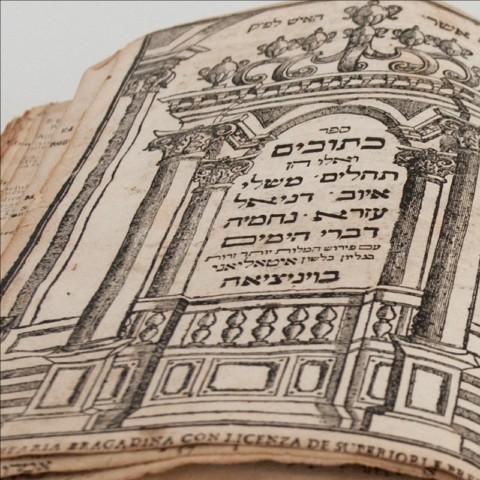 אשרי האיש לפ״ק
ספר
כתובים
ואלו הן
תהלים· משלי
איוב· דניאל
עזרא· נחמיה
דברי הימים
עם פירוש המלות יותר זרות
בגליון בלשון איטאליאני
בויניציאה
BRAGADINA CON LICENZA DE SUPERIORI E PRE